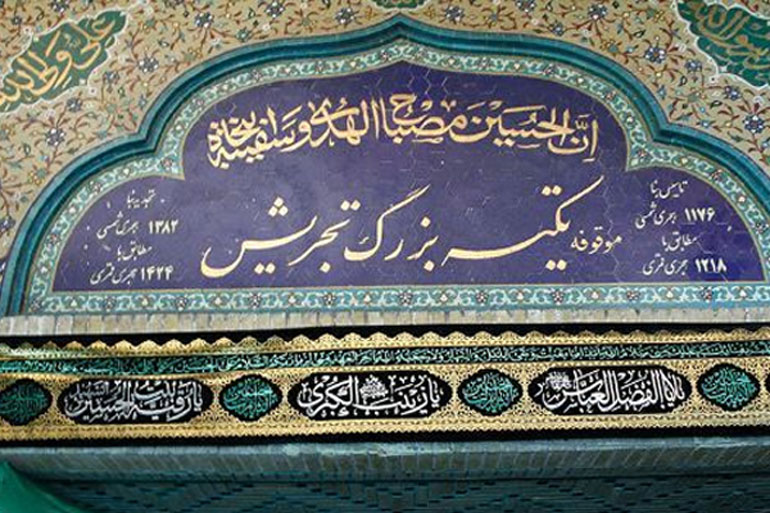 علی ولی الله
ان الحسین مصباح الهدی و سفینه النجاة
موقوفه تکیه بزرگ تجریش
تاسیس بنا
۱۱۷۶ هجری شمسی
مطابق با
۱۲۱۸ هجری قمری
تجدید بنا
۱۳۸۲ هجری شمسی
مطابق با
۱۴۲۴ هجری قمری
یا ابا الفضل العباس
یا زینب الکبری
یا رقیة بنت الحسین